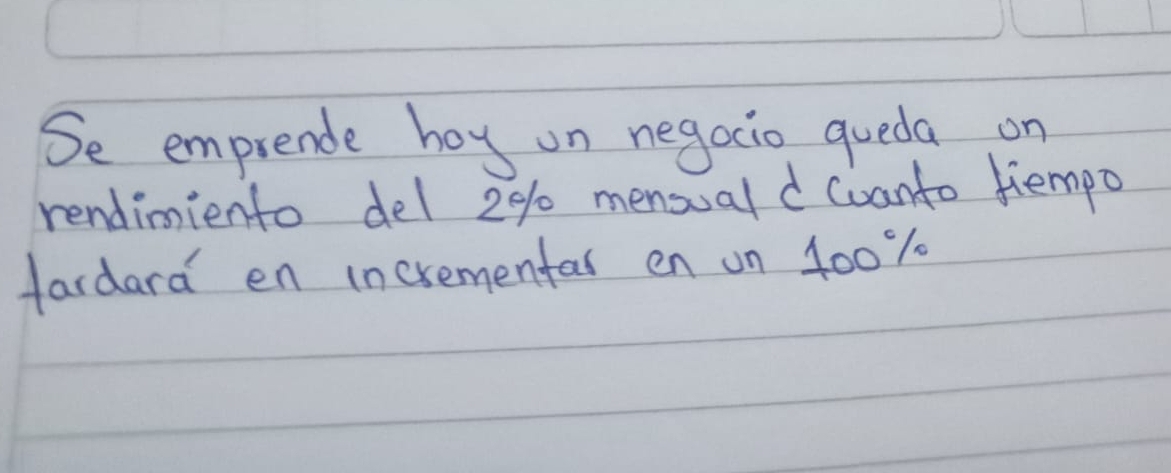 Se emprende hoy un negocio queda un
rendimiento del 2% mensual ¿ Cuanto tiempo
tardará en incrementar en un 100%